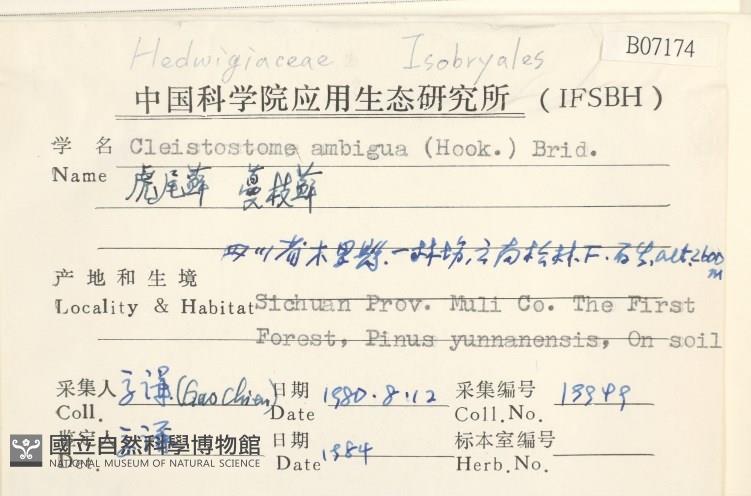 Hedwigiaceae Isobryales B07174
中国科学院应用生态研究所 (IFSBH)
学 名 Cleistostome ambigua (Hook.) Brid.
Name 虎尾藓 蔓枝藓
四川省木里县.一林场,云南松林下.石生,alt.2600m
产地和生境
Locality & Habitat Sichuan Prov. Muli Co. The First
Forest, Pinus yunnanensis, On soil
采集人 高谦(Gao Chien) 日期 1980.8.12 采集编号 19949
Coll. Date Coll.No.
鉴定人 高谦 日期 1984 标本室编号
Det. Date Herb.No.
國立自然科學博物館
NATIONAL MUSEUM OF NATURAL SCIENCE